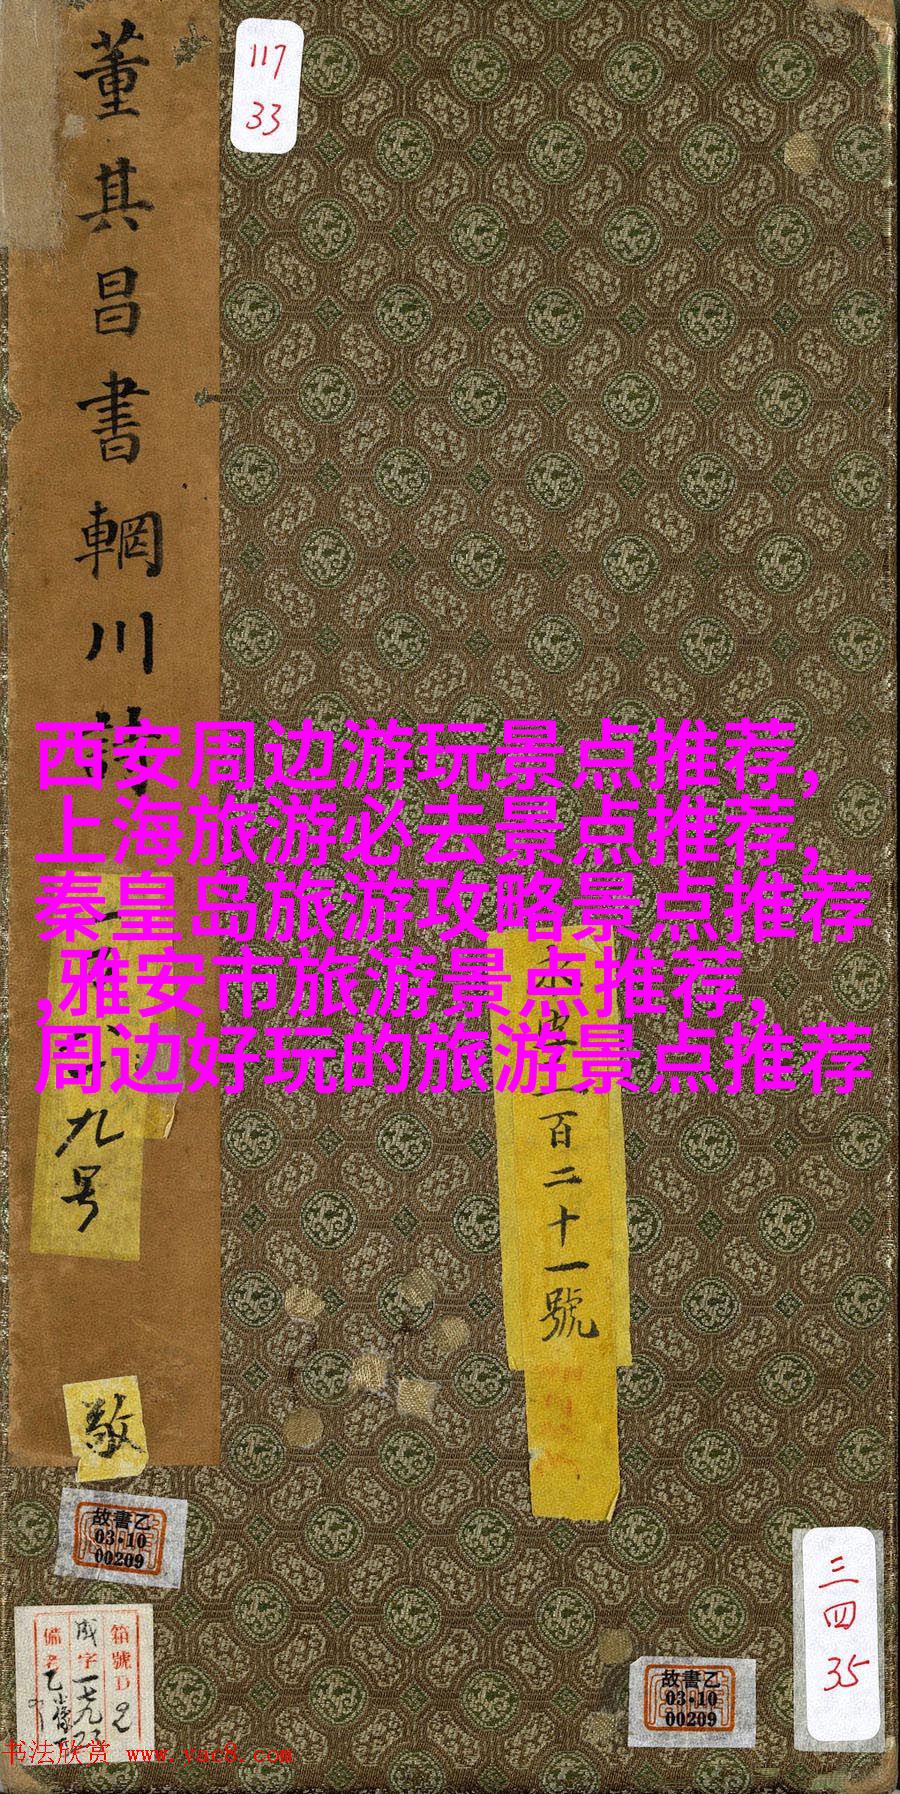 董其昌書輞川詩
117
33
西安周边游玩景点推荐,
上海旅游必去景点推荐,
秦皇岛旅游攻略景点推荐
,雅安市旅游景点推荐,
周边好玩的旅游景点推荐
九号
百二十一號
敬
故書乙
03·10
00209
箱號D 2
成字一七九
故書乙
03·10
00209
三
四
35
书法欣赏 www.yac8.com